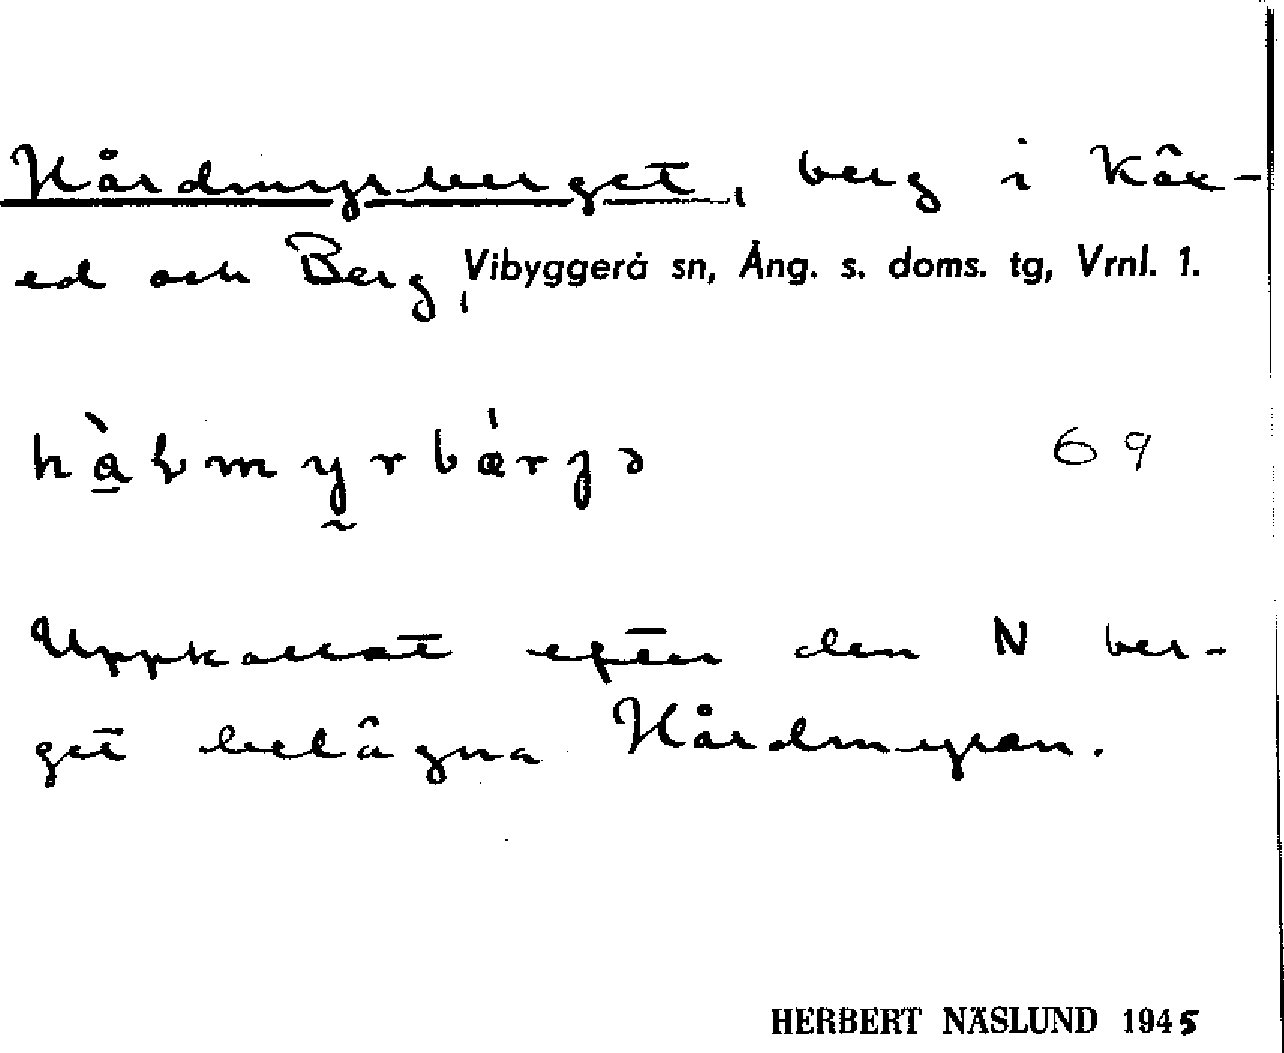 Hårdmyrberget, berg i Käx-
ed och Berg, Vibyggerå sn, Ång. s. doms. tg, Vrnl. 1.
69
Uppkallat efter den N ber-
get belägna Hårdmyran.
HERBERT NÄSLUND 1945